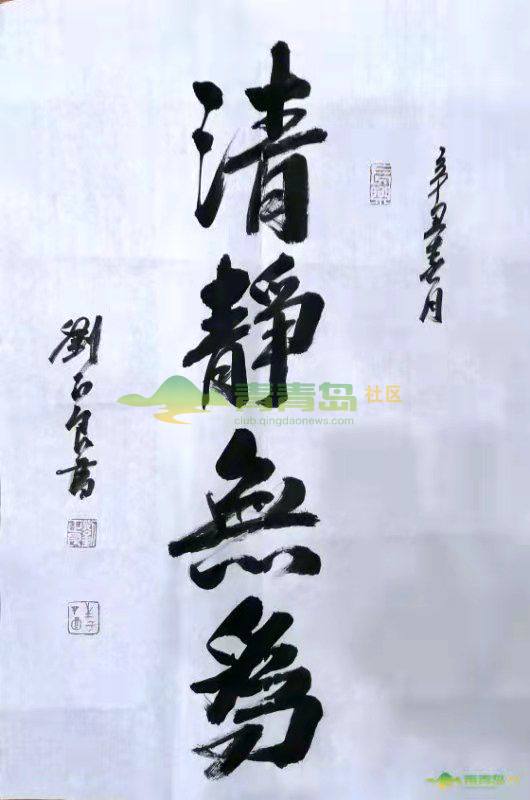 辛丑春月
清靜無為
劉正良書
青青岛 社区
club.qingdaonews.com
青青岛